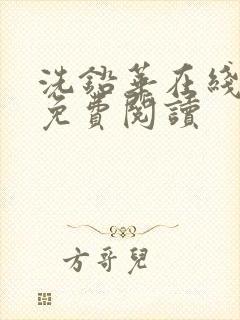 洗鉛華在綫
免費閱讀
方哥兒